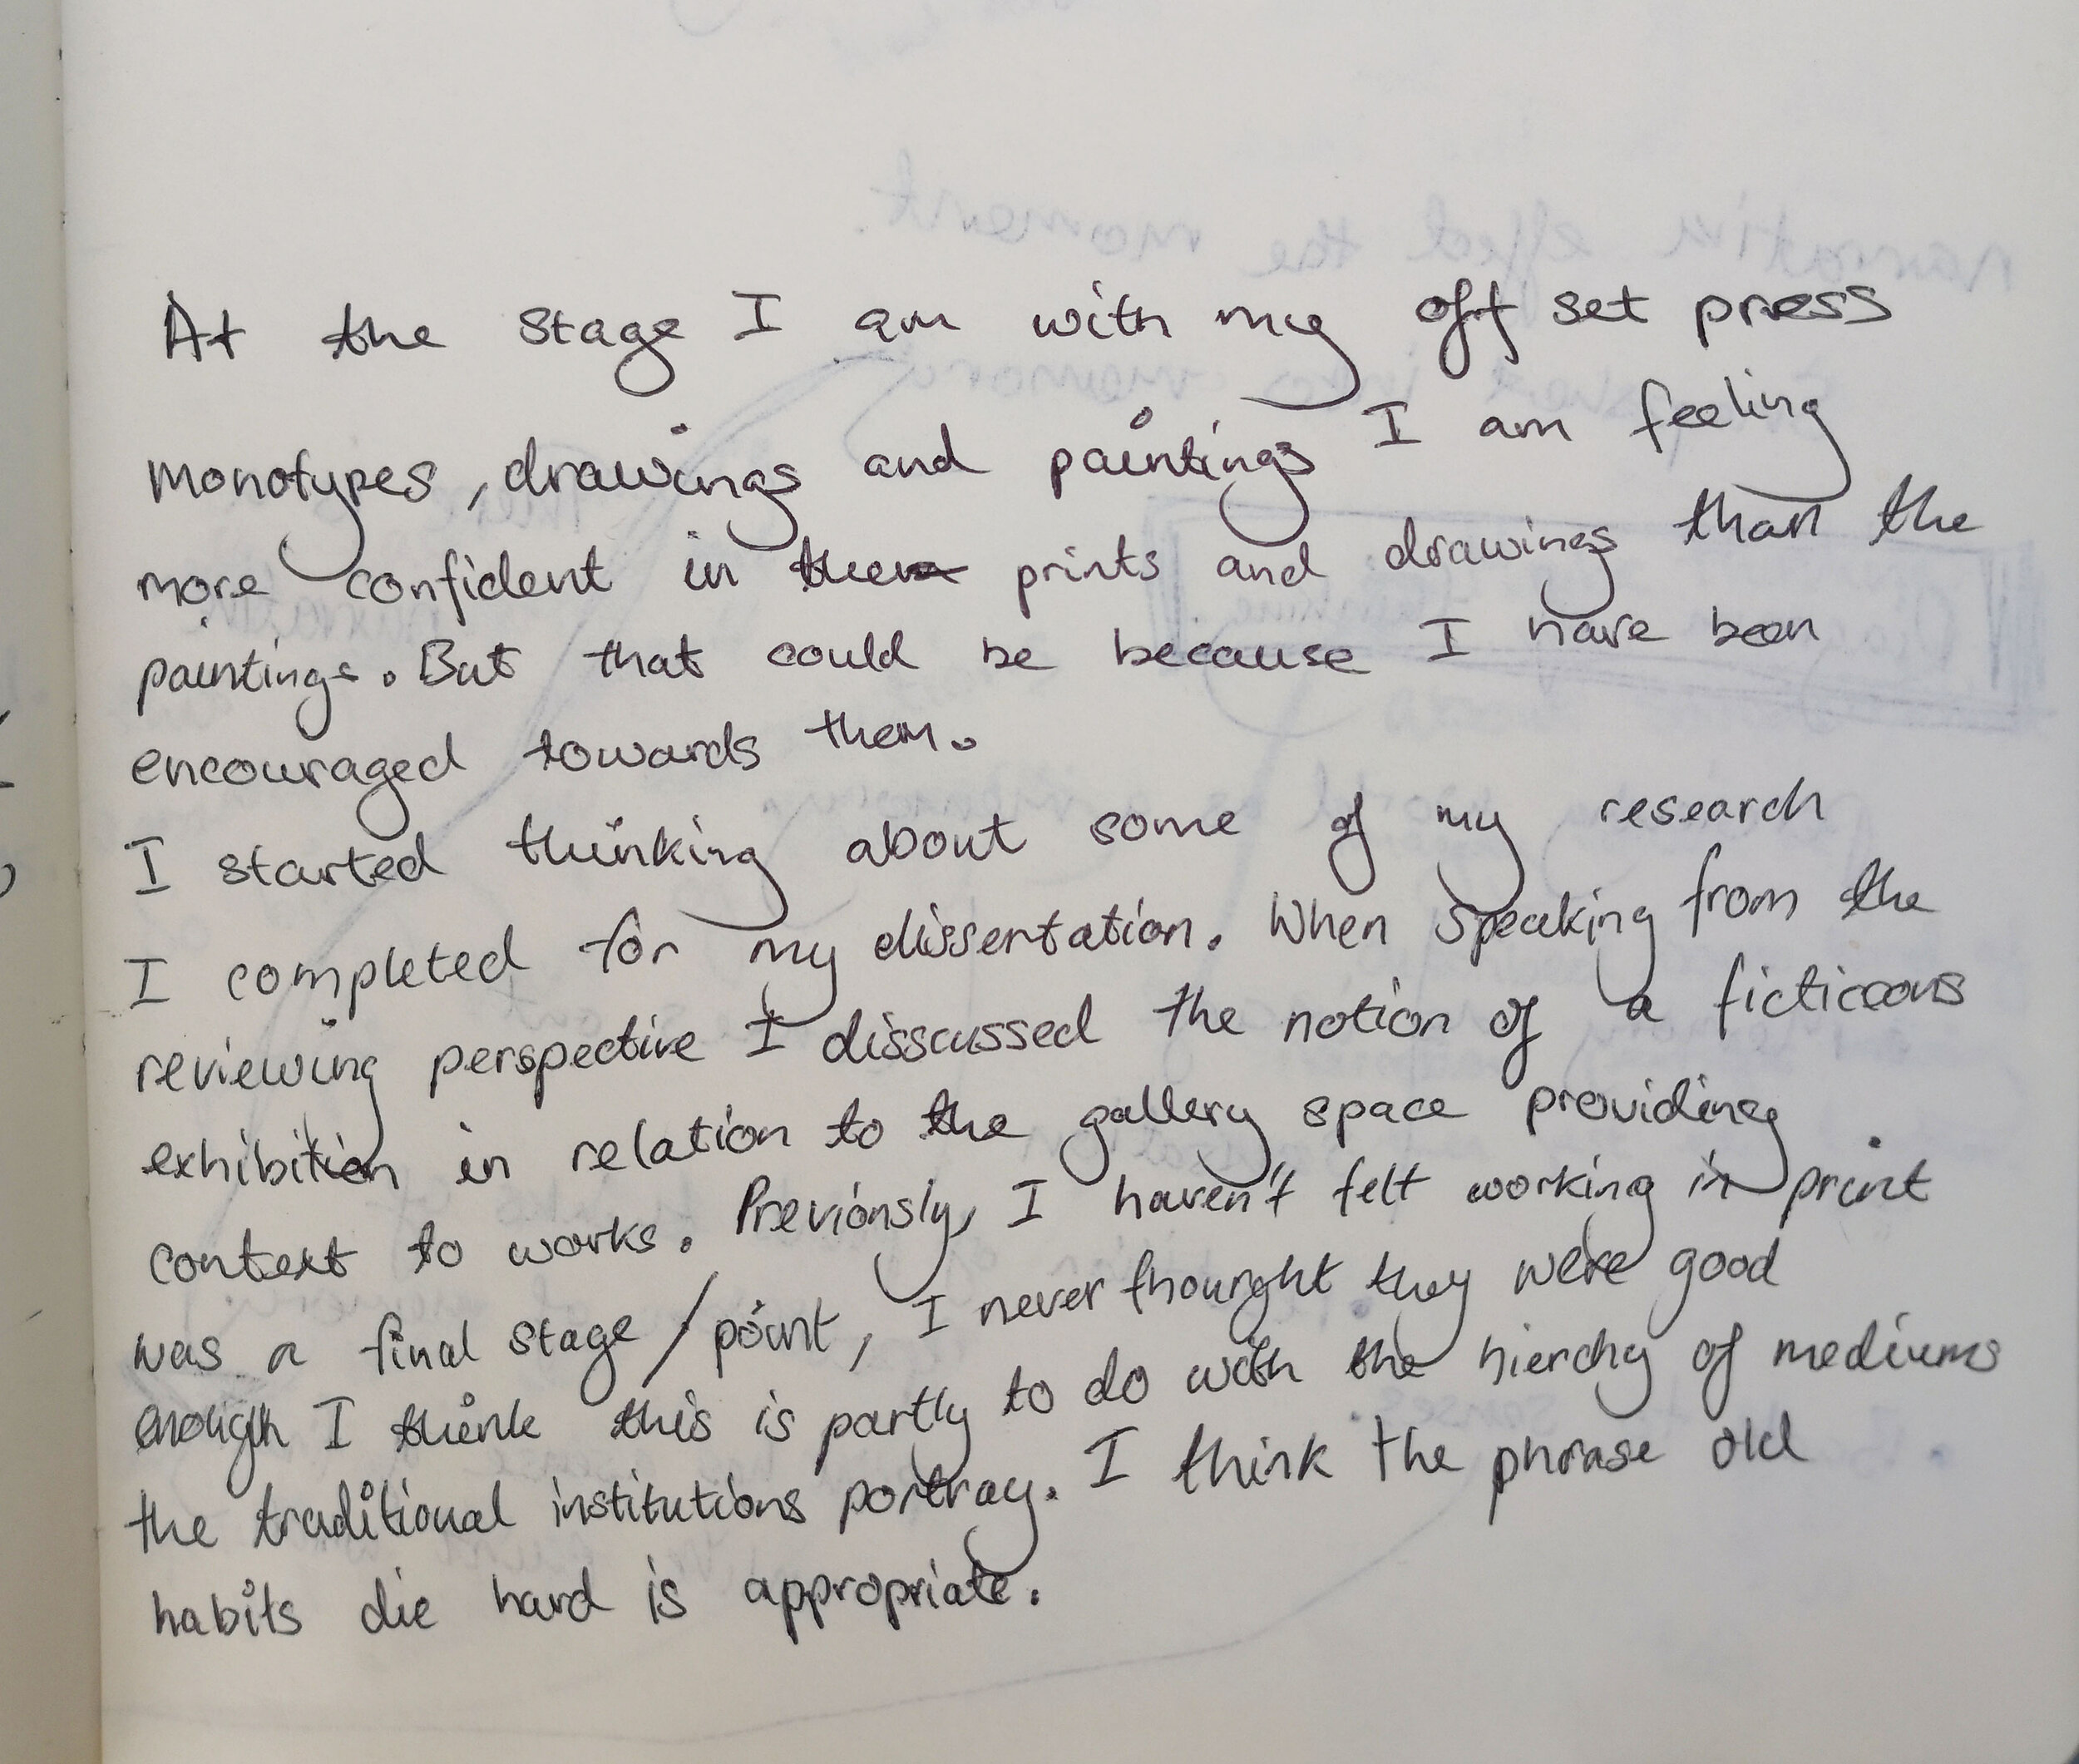 At the stage I am with my off set press
monotypes, drawings and paintings I am feeling
more confident in them prints and drawings than the
paintings. But that could be because I have been
encouraged towards them.
I started thinking about some of my research
I completed for my dissertation. When speaking from the
reviewing perspective I disscussed the notion of a ficticous
exhibition in relation to the gallery space providing
context to works. Previously, I haven't felt working in print
was a final stage / point, I never thourght they were good
enough I think this is partly to do with the hierchy of mediums
the traditional institutions portray. I think the phrase old
habits die hard is appropriate.